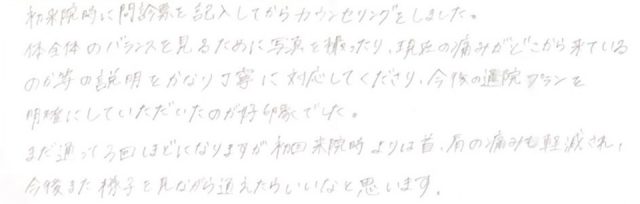 初来院時に問診票を記入してからカウンセリングをしました。
体全体のバランスを見るために写真を撮ったり、現在の痛みがどこから来ている
のか等の説明をかなり丁寧に対応してくださり、今後の通院プランを
明確にしていただいたのが好印象でした。
まだ通って3回ほどになりますが初回来院時よりは首、肩の痛みも軽減され、
今後また様子を見ながら通えたらいいなと思います。